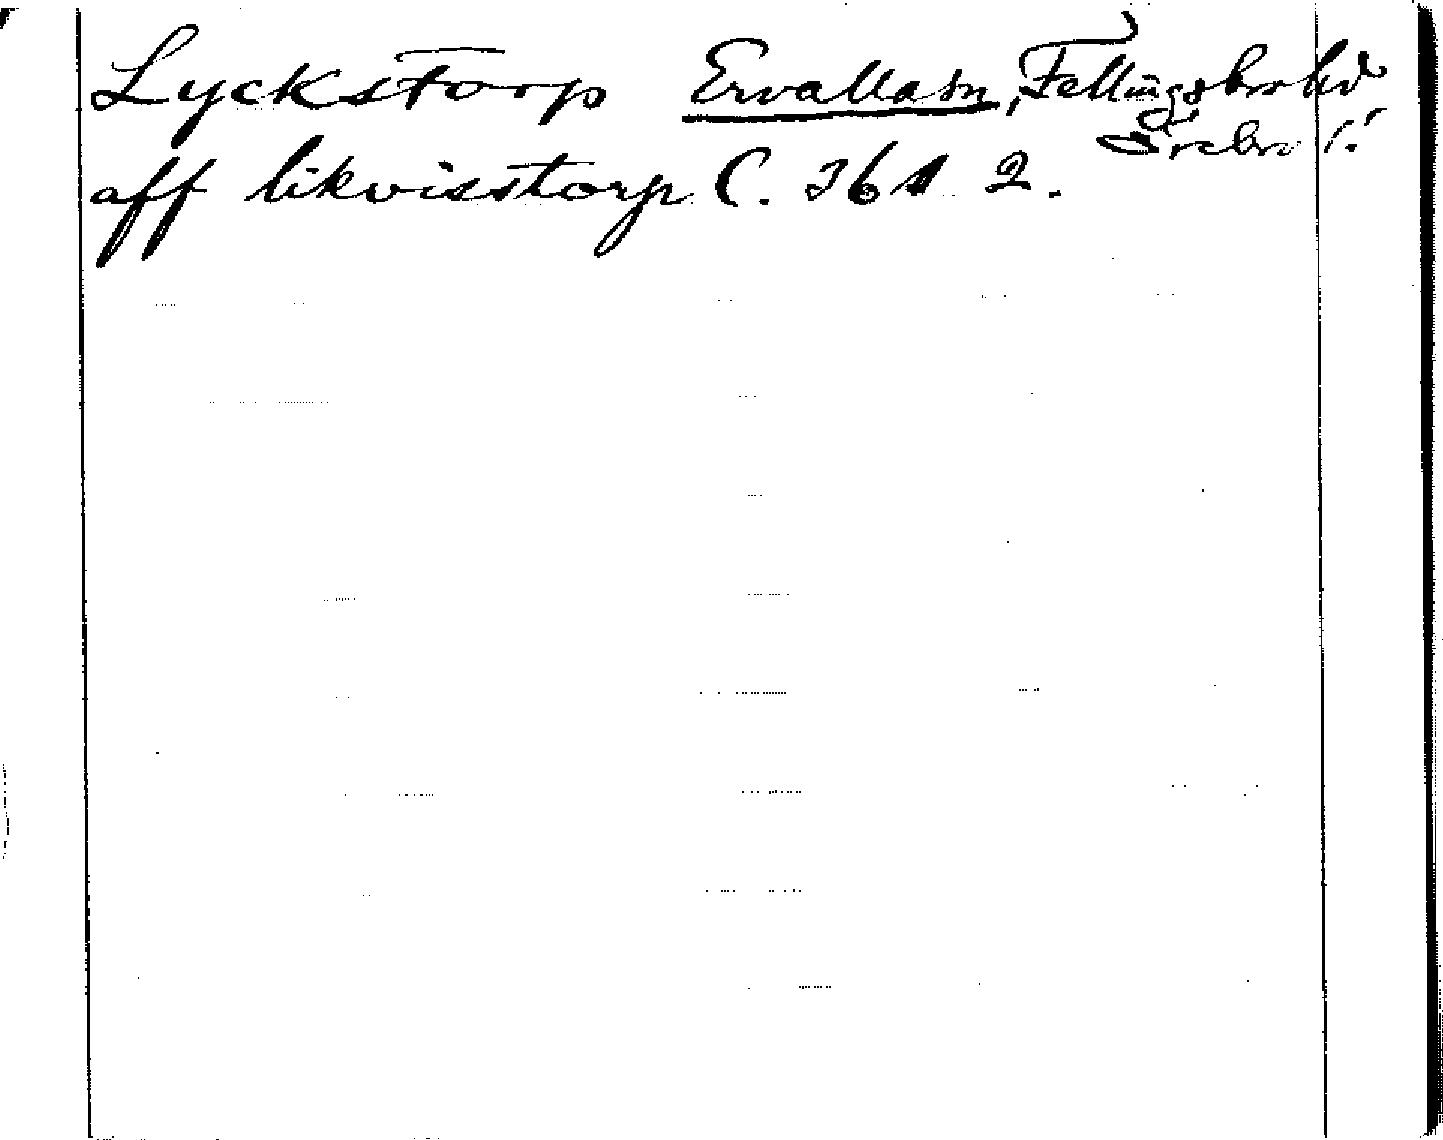 Lyckstorp Ervalla sn, Fellingsbro hd
Örebro l.
aff likvisstorp C. 36 2.